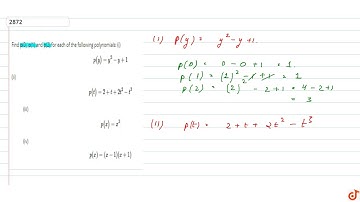 2872
Find p(0), p(1) and p(2) for each of the following polynomials (i)
p(y) = y² − y + 1
(ii)
p(t) = 2 + t + 2t² − t³
(iii)
p(x) = x³
(iv)
p(x) = (x − 1)(x + 1)
(i) P(y) = y² - y + 1.
p(0) = 0 - 0 + 1 = 1.
p(1) = (1)² - 1 + 1 = 1
p(2) = (2)² - 2 + 1 = 4 - 2 + 1
= 3
(ii) p(t) = 2 + t + 2t² - t³
doubtnut